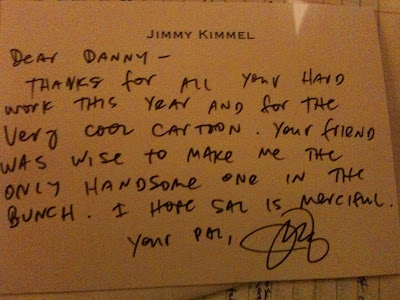 JIMMY KIMMEL
DEAR DANNY —
THANKS for ALL YOUR HARD
WORK THIS YEAR AND for THE
VERY COOL CARTOON. YOUR fRIEND
WAS WISE TO MAKE ME THE
ONLY HANDSOME ONE IN THE
BUNCH. I HOPE SAL IS MERCIFUL.
YOUR PAL,